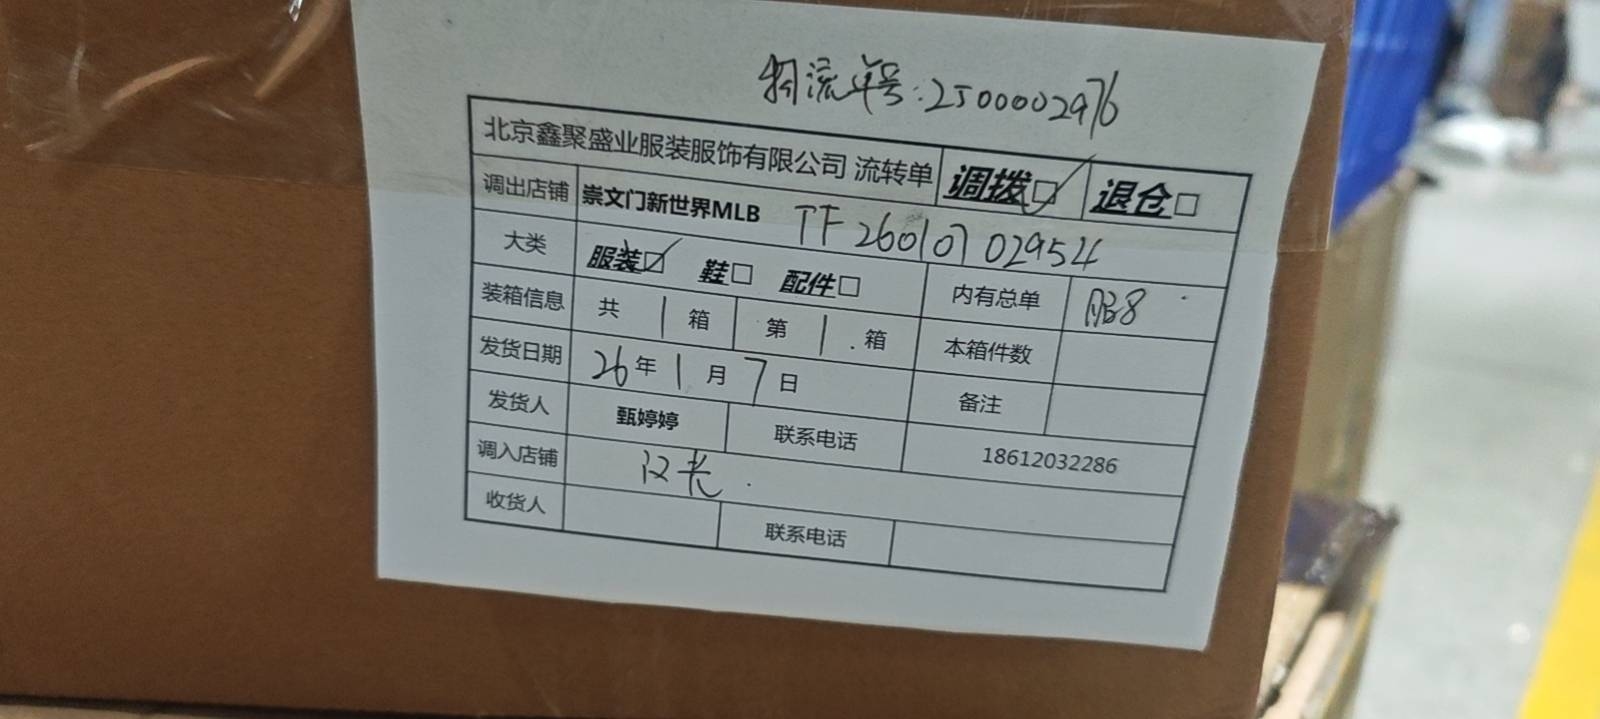 物流单号:2500002976
北京鑫聚盛业服装服饰有限公司 流转单 调拨☑ 退仓□
调出店铺 崇文门新世界MLB TF26010702954
大类 服装☑ 鞋□ 配件□ 内有总单 服8
装箱信息 共 1 箱 第 1 箱 本箱件数
发货日期 26年1月7日 备注
发货人 甄婷婷 联系电话 18612032286
调入店铺 汉光
收货人 联系电话